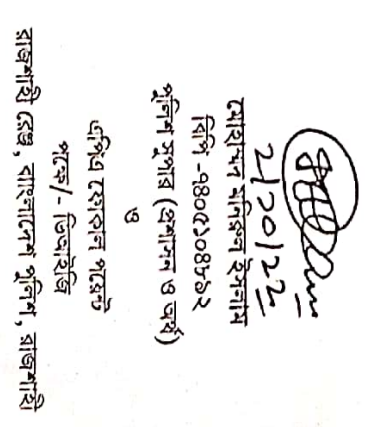 ২/১০/২২
মোহাম্মদ মনিরুল ইসলাম
বিপি -৭৪০৫১০৪৮৬২
পুলিশ সুপার (প্রশাসন ও অর্থ)
ও
এপিএ ফোকাল পয়েন্ট
পক্ষে/- ডিআইজি
রাজশাহী রেঞ্জ, বাংলাদেশ পুলিশ, রাজশাহী